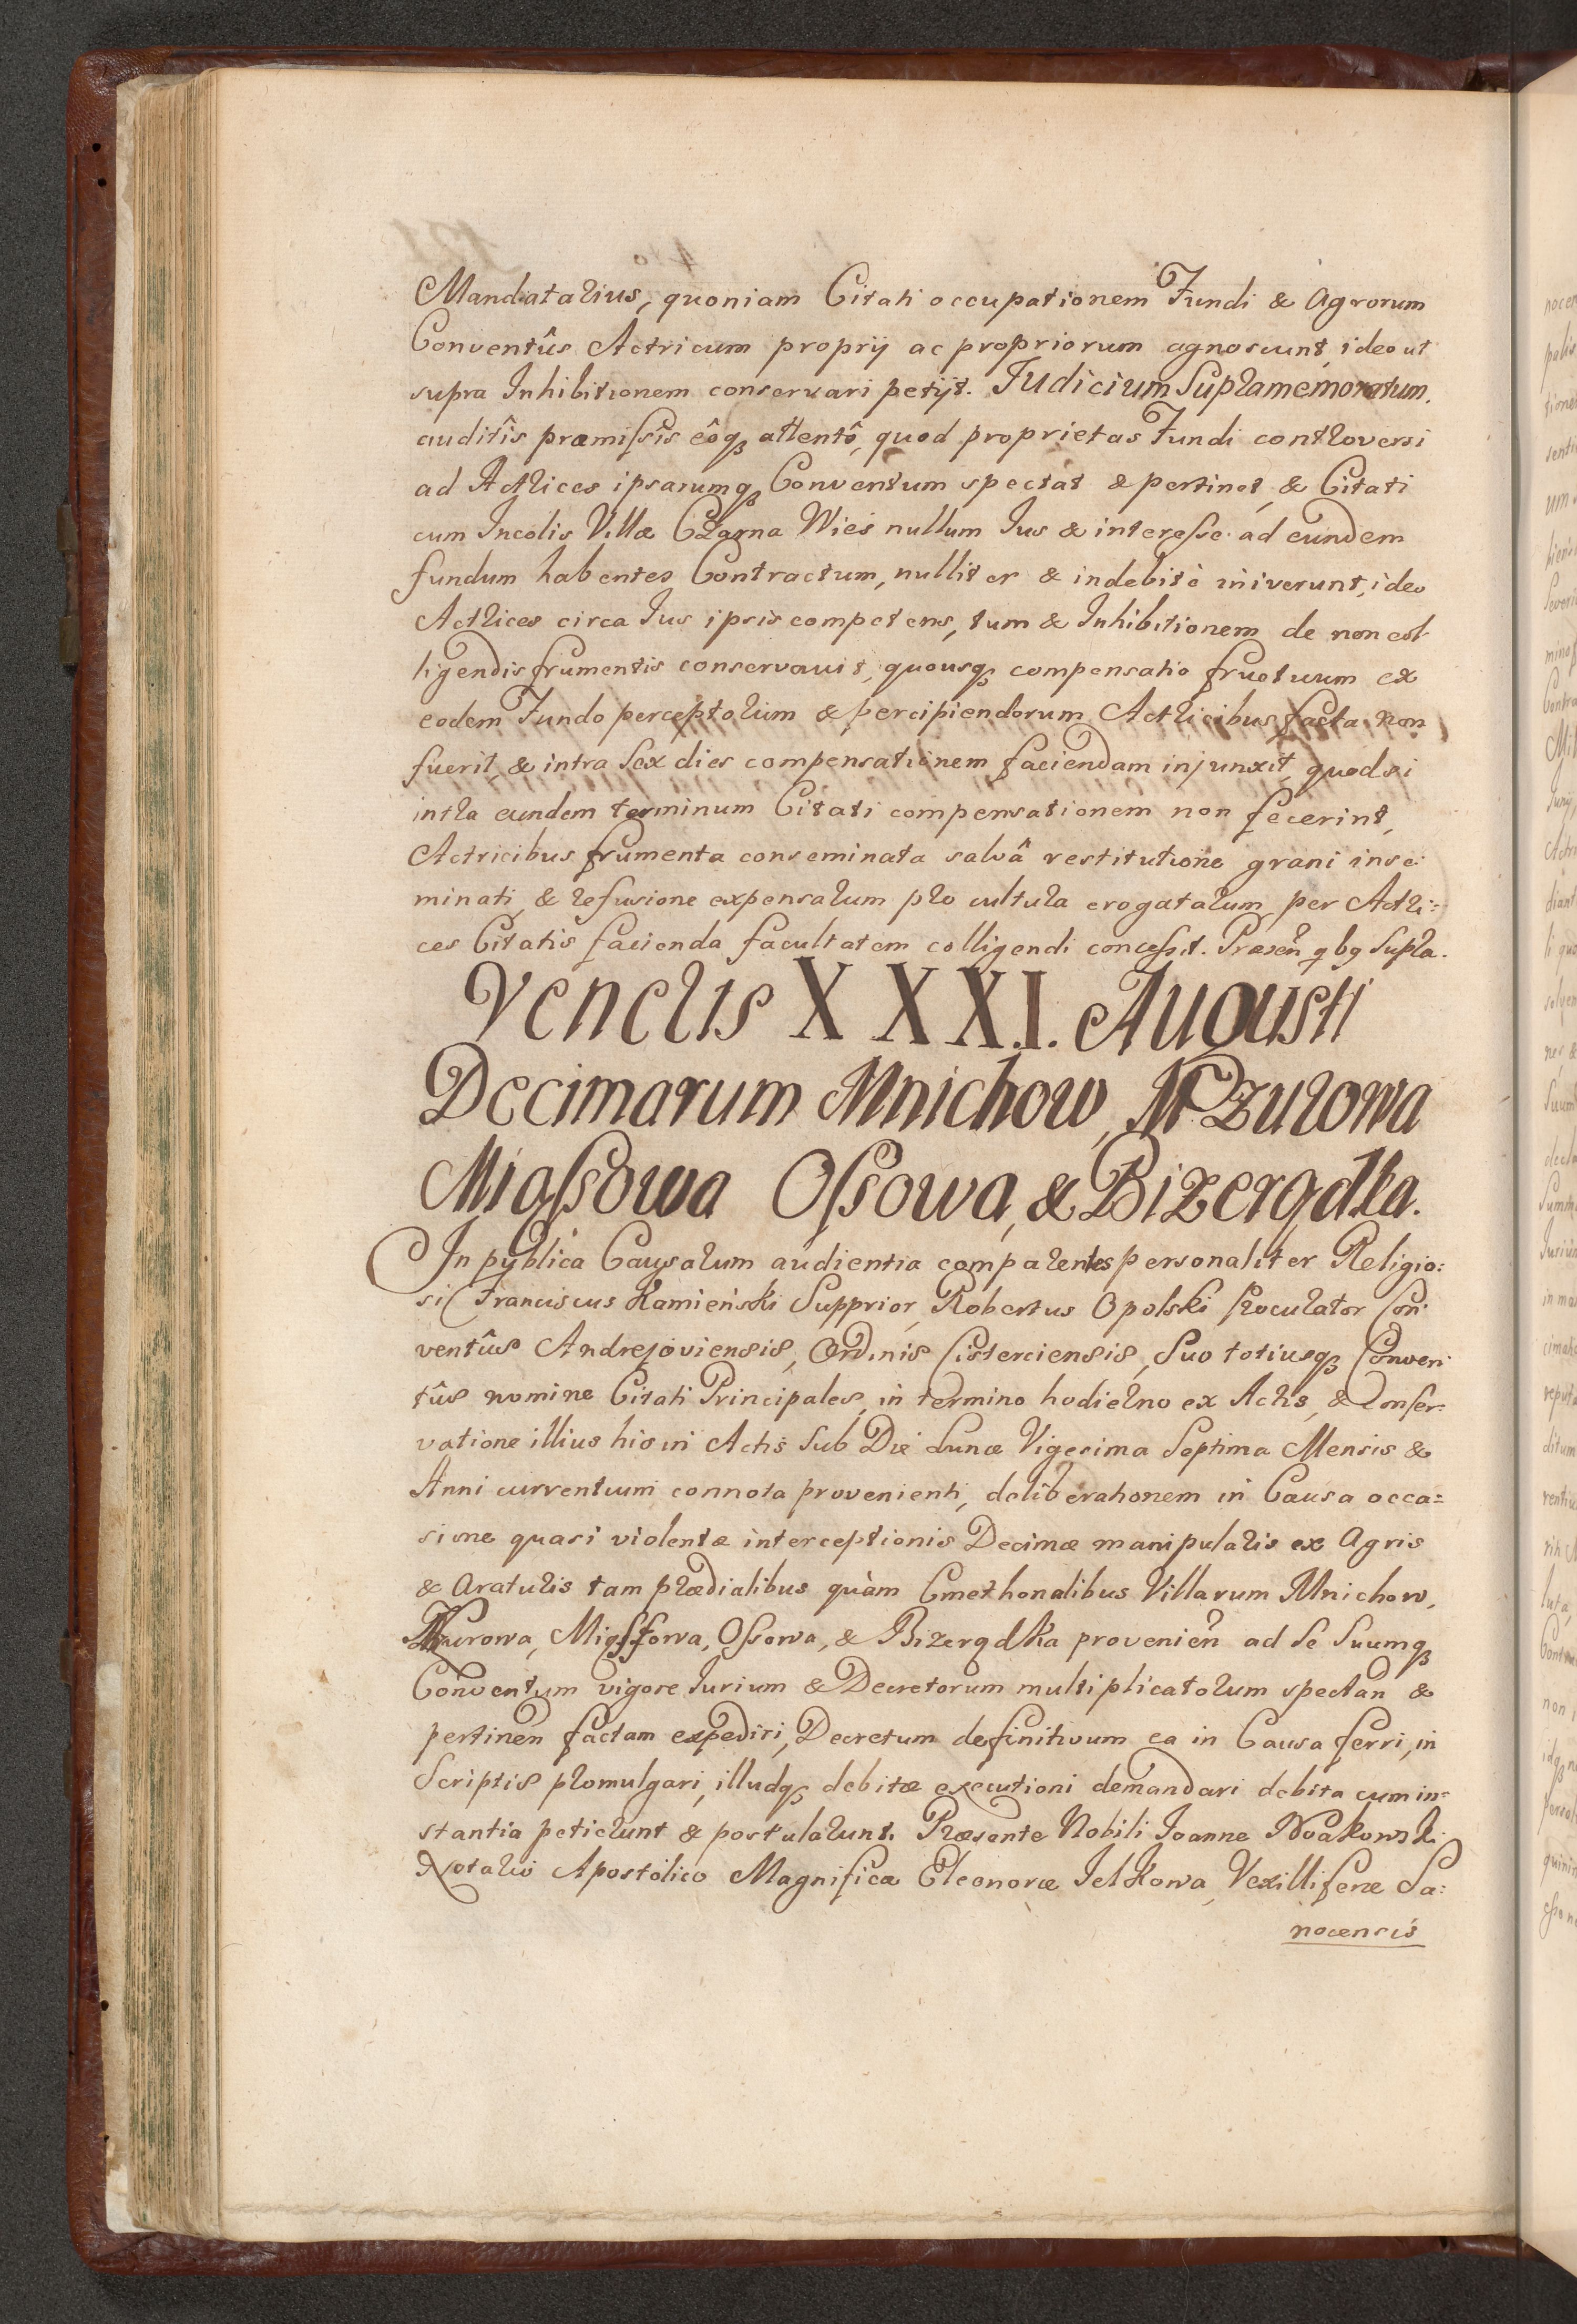 Mandatarius, quoniam Citati occupationem Fundi & Agrorum
Conventûs Actricum proprij ac propriorum agnoscunt, ideo ut
supra Inhibitionem conservari petijt. Judicium Supramemoratum.
auditîs præmissîs eôq attentô, quod proprietas Fundi controversi
ad Actrices ipsarumq Conventum spectat & pertinet, & Citati
cum Incolis Villæ Czarna Wieś nullum Jus & interesse ad eundem
fundum habentes Contractum, nulliter & indebitè iniverunt, ideo
Actrices circa Jus ipsis competens, tum & Inhibitionem de non col-
ligendis frumentis conservavit, quousq compensatio fructuum ex
eodem Fundo perceptorum & percipiendorum Actricibus facta non
fuerit, & intra Sex dies compensationem faciendam injunxit, quodsi
intra eundem terminum Citati compensationem non fecerint,
Actricibus frumenta conseminata salvâ restitutione grani inse-
minati, & refusione expensarum pro cultura erogatarum per Actri=
ces Citatis facienda facultatem colligendi concessit. Præsen qbg Supra.
Veneris XXXI. Augusti
Decimarum Mnichow, Wrzurowa
Miąssowa Ossowa, & Bizerądka.
In publica Causarum audientia comparentes personaliter Religio:
si Franciscus Kamieński Supprior, Robertus Opolski Procurator Con-
ventûs Andrejoviensis, Ordinis Cisterciensis, Suo totiusq Conven-
tûs nomine Citati Principales, in termino hodierno ex Actis, & Conser-
vatione illius his in Actis Sub Die Lunæ Vigesima Septima Mensis &
Anni currentium connota provenienti, deliberationem in Causa occa=
sione quasi violentæ interceptionis Decimæ manipularis ex Agris
& Araturis tam prædialibus quàm Cmethonalibus Villarum Mnichow,
Miąssowa, Ossowa, & Bizerądka provenień ad Se Suumq
Conventum vigore Jurium & Decretorum multiplicatorum spectan &
pertinen factam expediri, Decretum definitivum ea in Causa ferri, in
Scriptis promulgari, illudq debitæ executioni demandari debita cum in=
stantia petierunt & postularunt. Præsente Nobili Joanne Noakowski
Notario Apostolico Magnificæ Eleonoræ Jelkowa, Vexilliferæ Sa:
nocensis